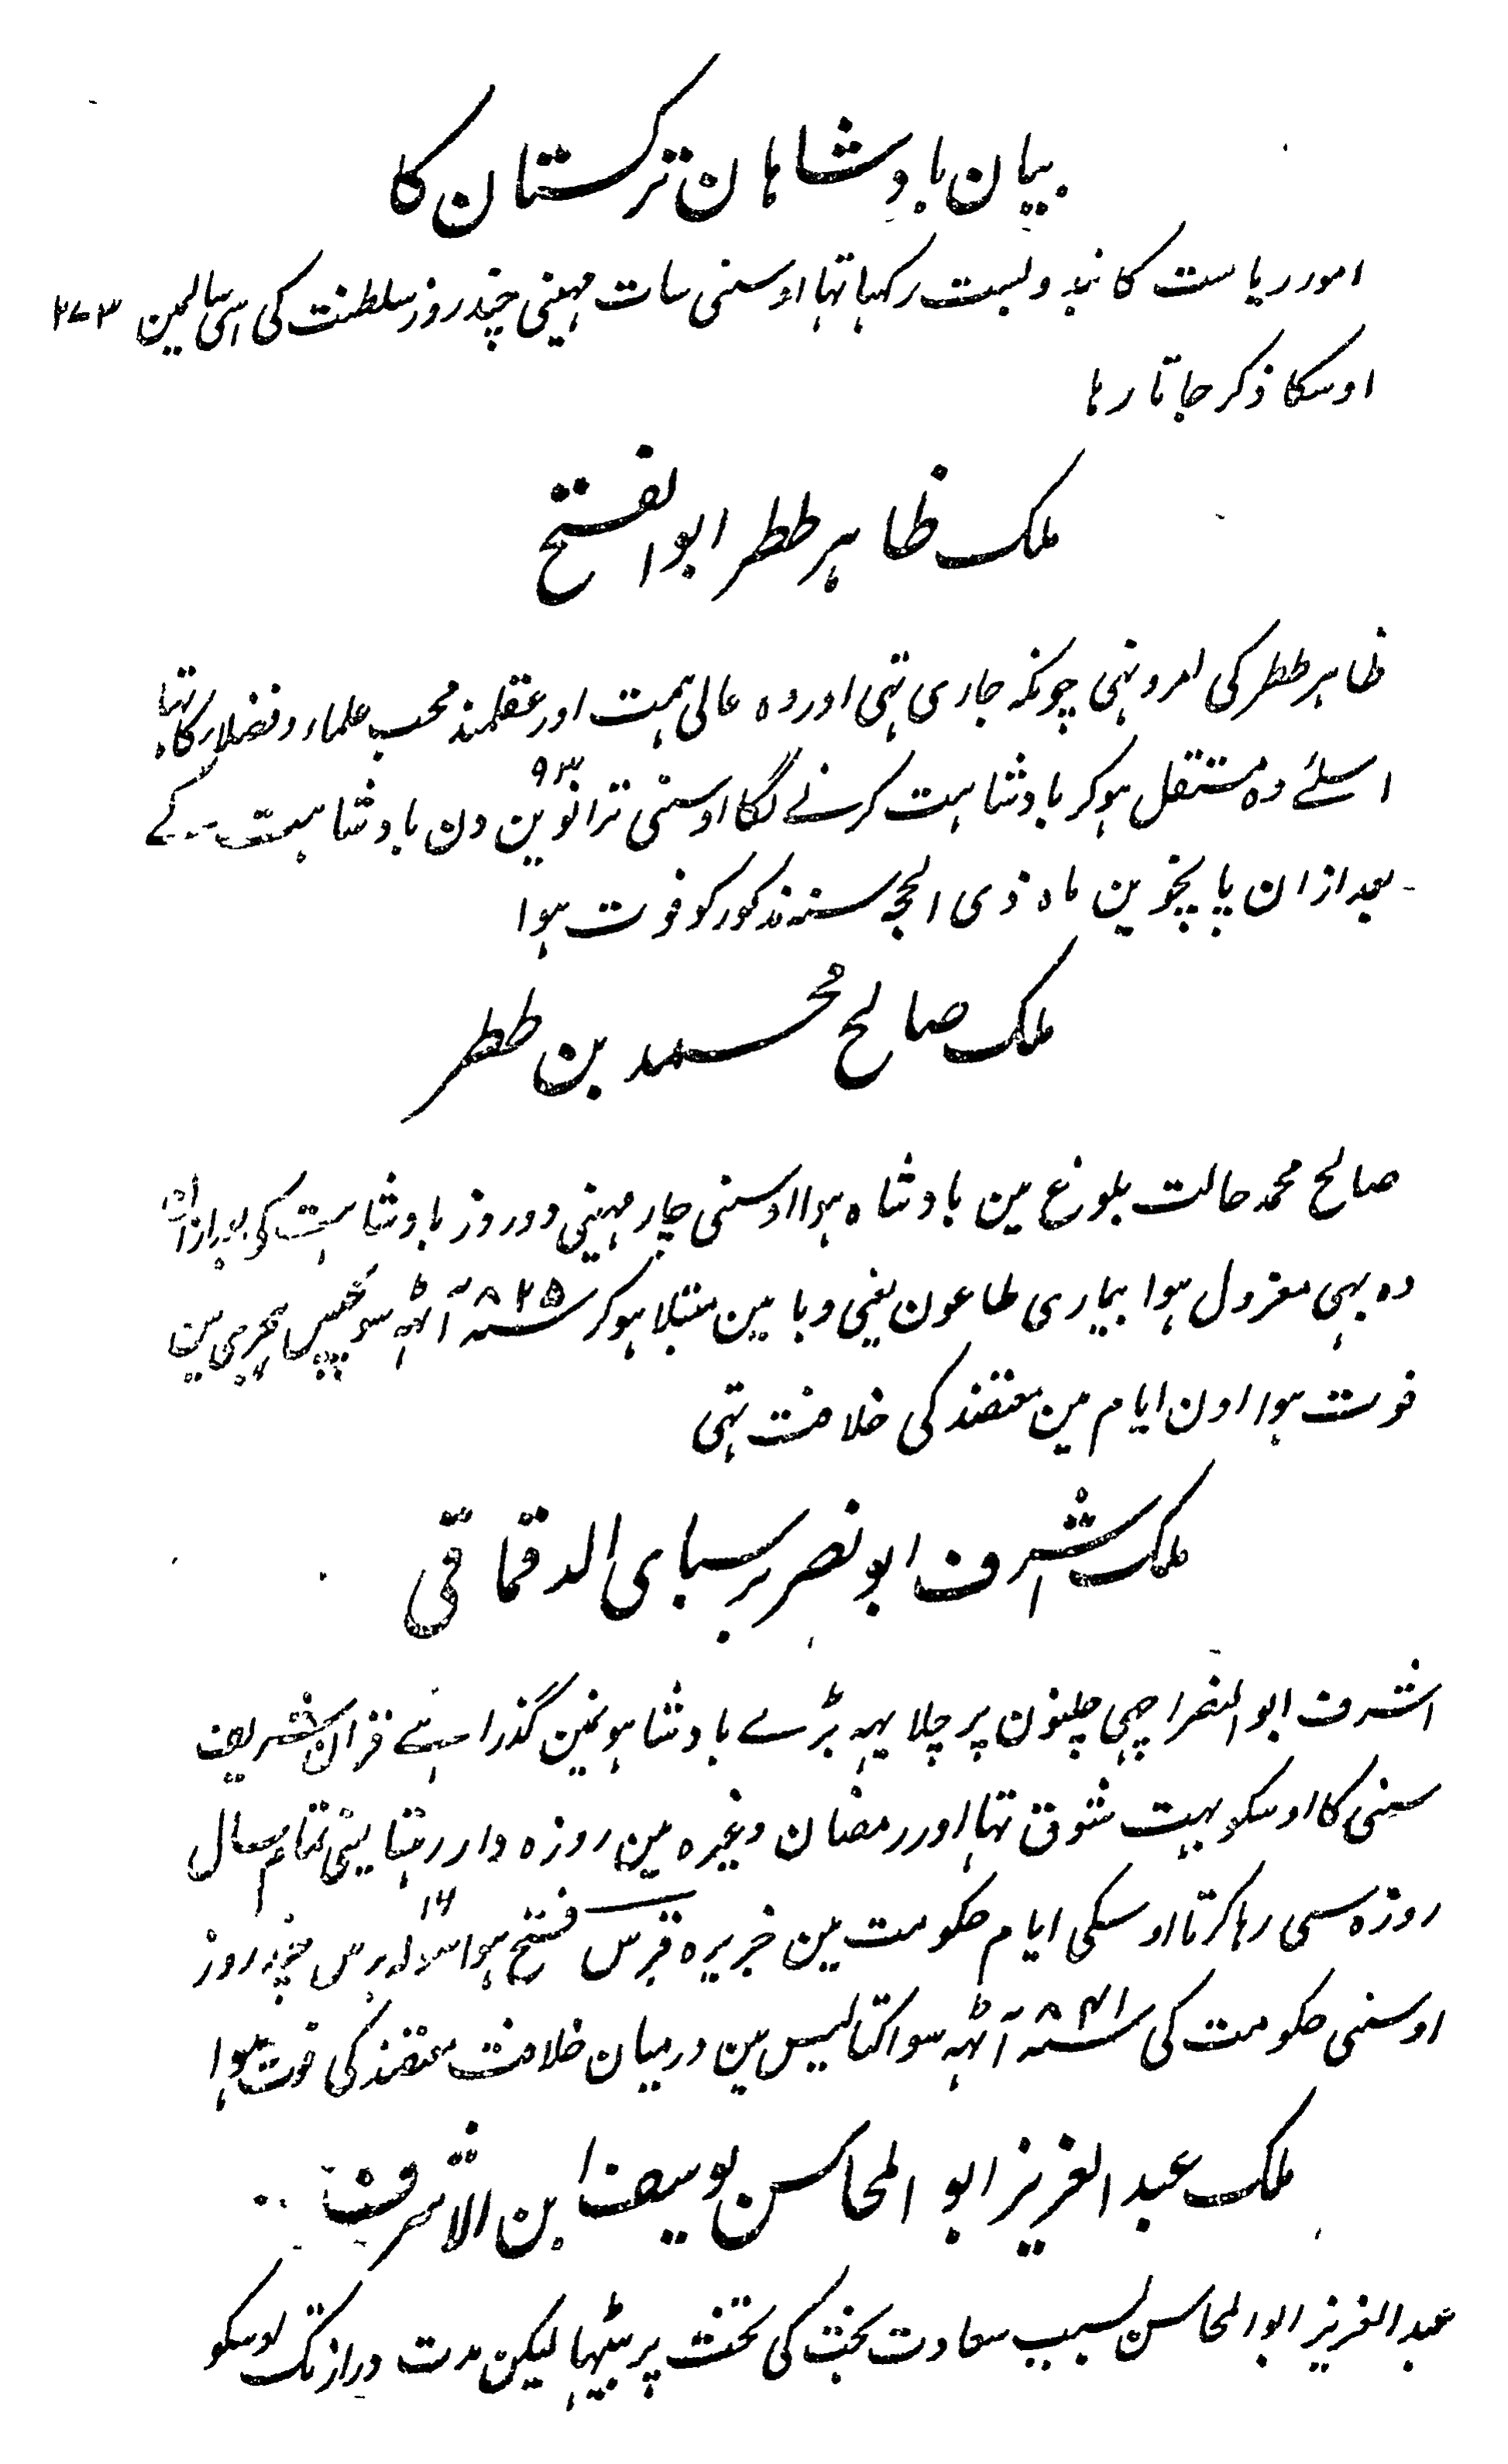 بیان بادشاہان ترکستان کا
امور ریاست کا بندوبست رکہا تہا اوسنی سات مہینی چند روز سلطنت کی اسی سالمین ۲۷۳
اوسکا ذکر جاتا رہا
ملک ظاہر ططر ابو الفتح
ظاہر ططر کی امر و نہی چونکہ جاری تہی اور وہ عالی ہمت اور عقلمند محب علماء و فضلاء کا تہا
اسلئے وہ مستقل ہو کر بادشاہت کرنے لگا اوسنی ترانوین ۹۳ دن بادشاہت کے
بعد ازان پانچوین ماہ ذی الحجہ سنہ مذکور کو فوت ہوا
ملک صالح محمد بن ططر
صالح محمد حالت بلوغ مین بادشاہ ہوا اوسنی چار مہینی دو روز بادشاہت کی بعد ازان
وہ بہی معزول ہوا بیماری طاعون یعنی وبا مین مبتلا ہو کر سنہ ۸۲۵ آٹہہ سو پچیس ہجری مین
فوت ہوا اون ایام مین معتضد کی خلافت تہی
ملک اشرف ابو نصر برسبای الدقماقی
اشرف ابو النصر اچہی چلنون پر چلا یہہ بڑے بادشاہونمین گذرا ہے قران شریف
سننی کا اوسکو بہت شوق تہا اور رمضان وغیرہ مین روزہ دار رہتا یعنی تمام سال
روزہ سی رہا کرتا اوسکی ایام حکومت مین جزیرہ قبرس فتح ہوا سولہ ۱۶ برس چند روز
اوسنی حکومت کی سنہ ۸۴۱ آٹہہ سو اکتالیس مین درمیان خلافت معتضد کی فوت ہوا
ملک عبد العزیز ابو المحاسن یوسف بن الاشرف
عبد العزیز ابو المحاسن بسبب سعادت بخت کی تخت پر بیٹہا لیکن مدت دراز تک اوسکو